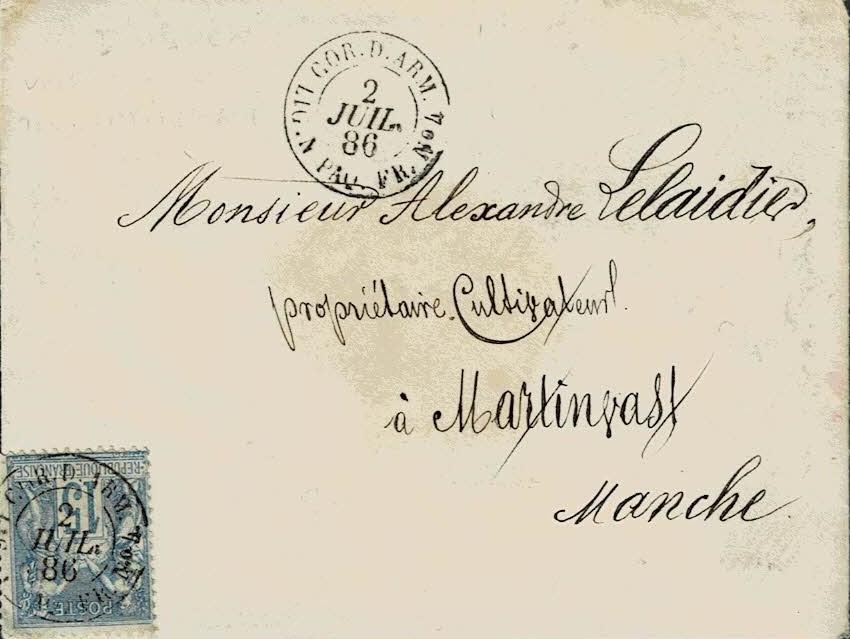 COR. D. ARM. PAQ. FR. No 4
2
JUIL.
86
Monsieur Alexandre Lelaidier,
propriétaire Cultivateur
à Martinvast
Manche
REPUBLIQUE FRANCAISE
15
POSTE
COR. D. ARM No 4
2
JUIL.
86